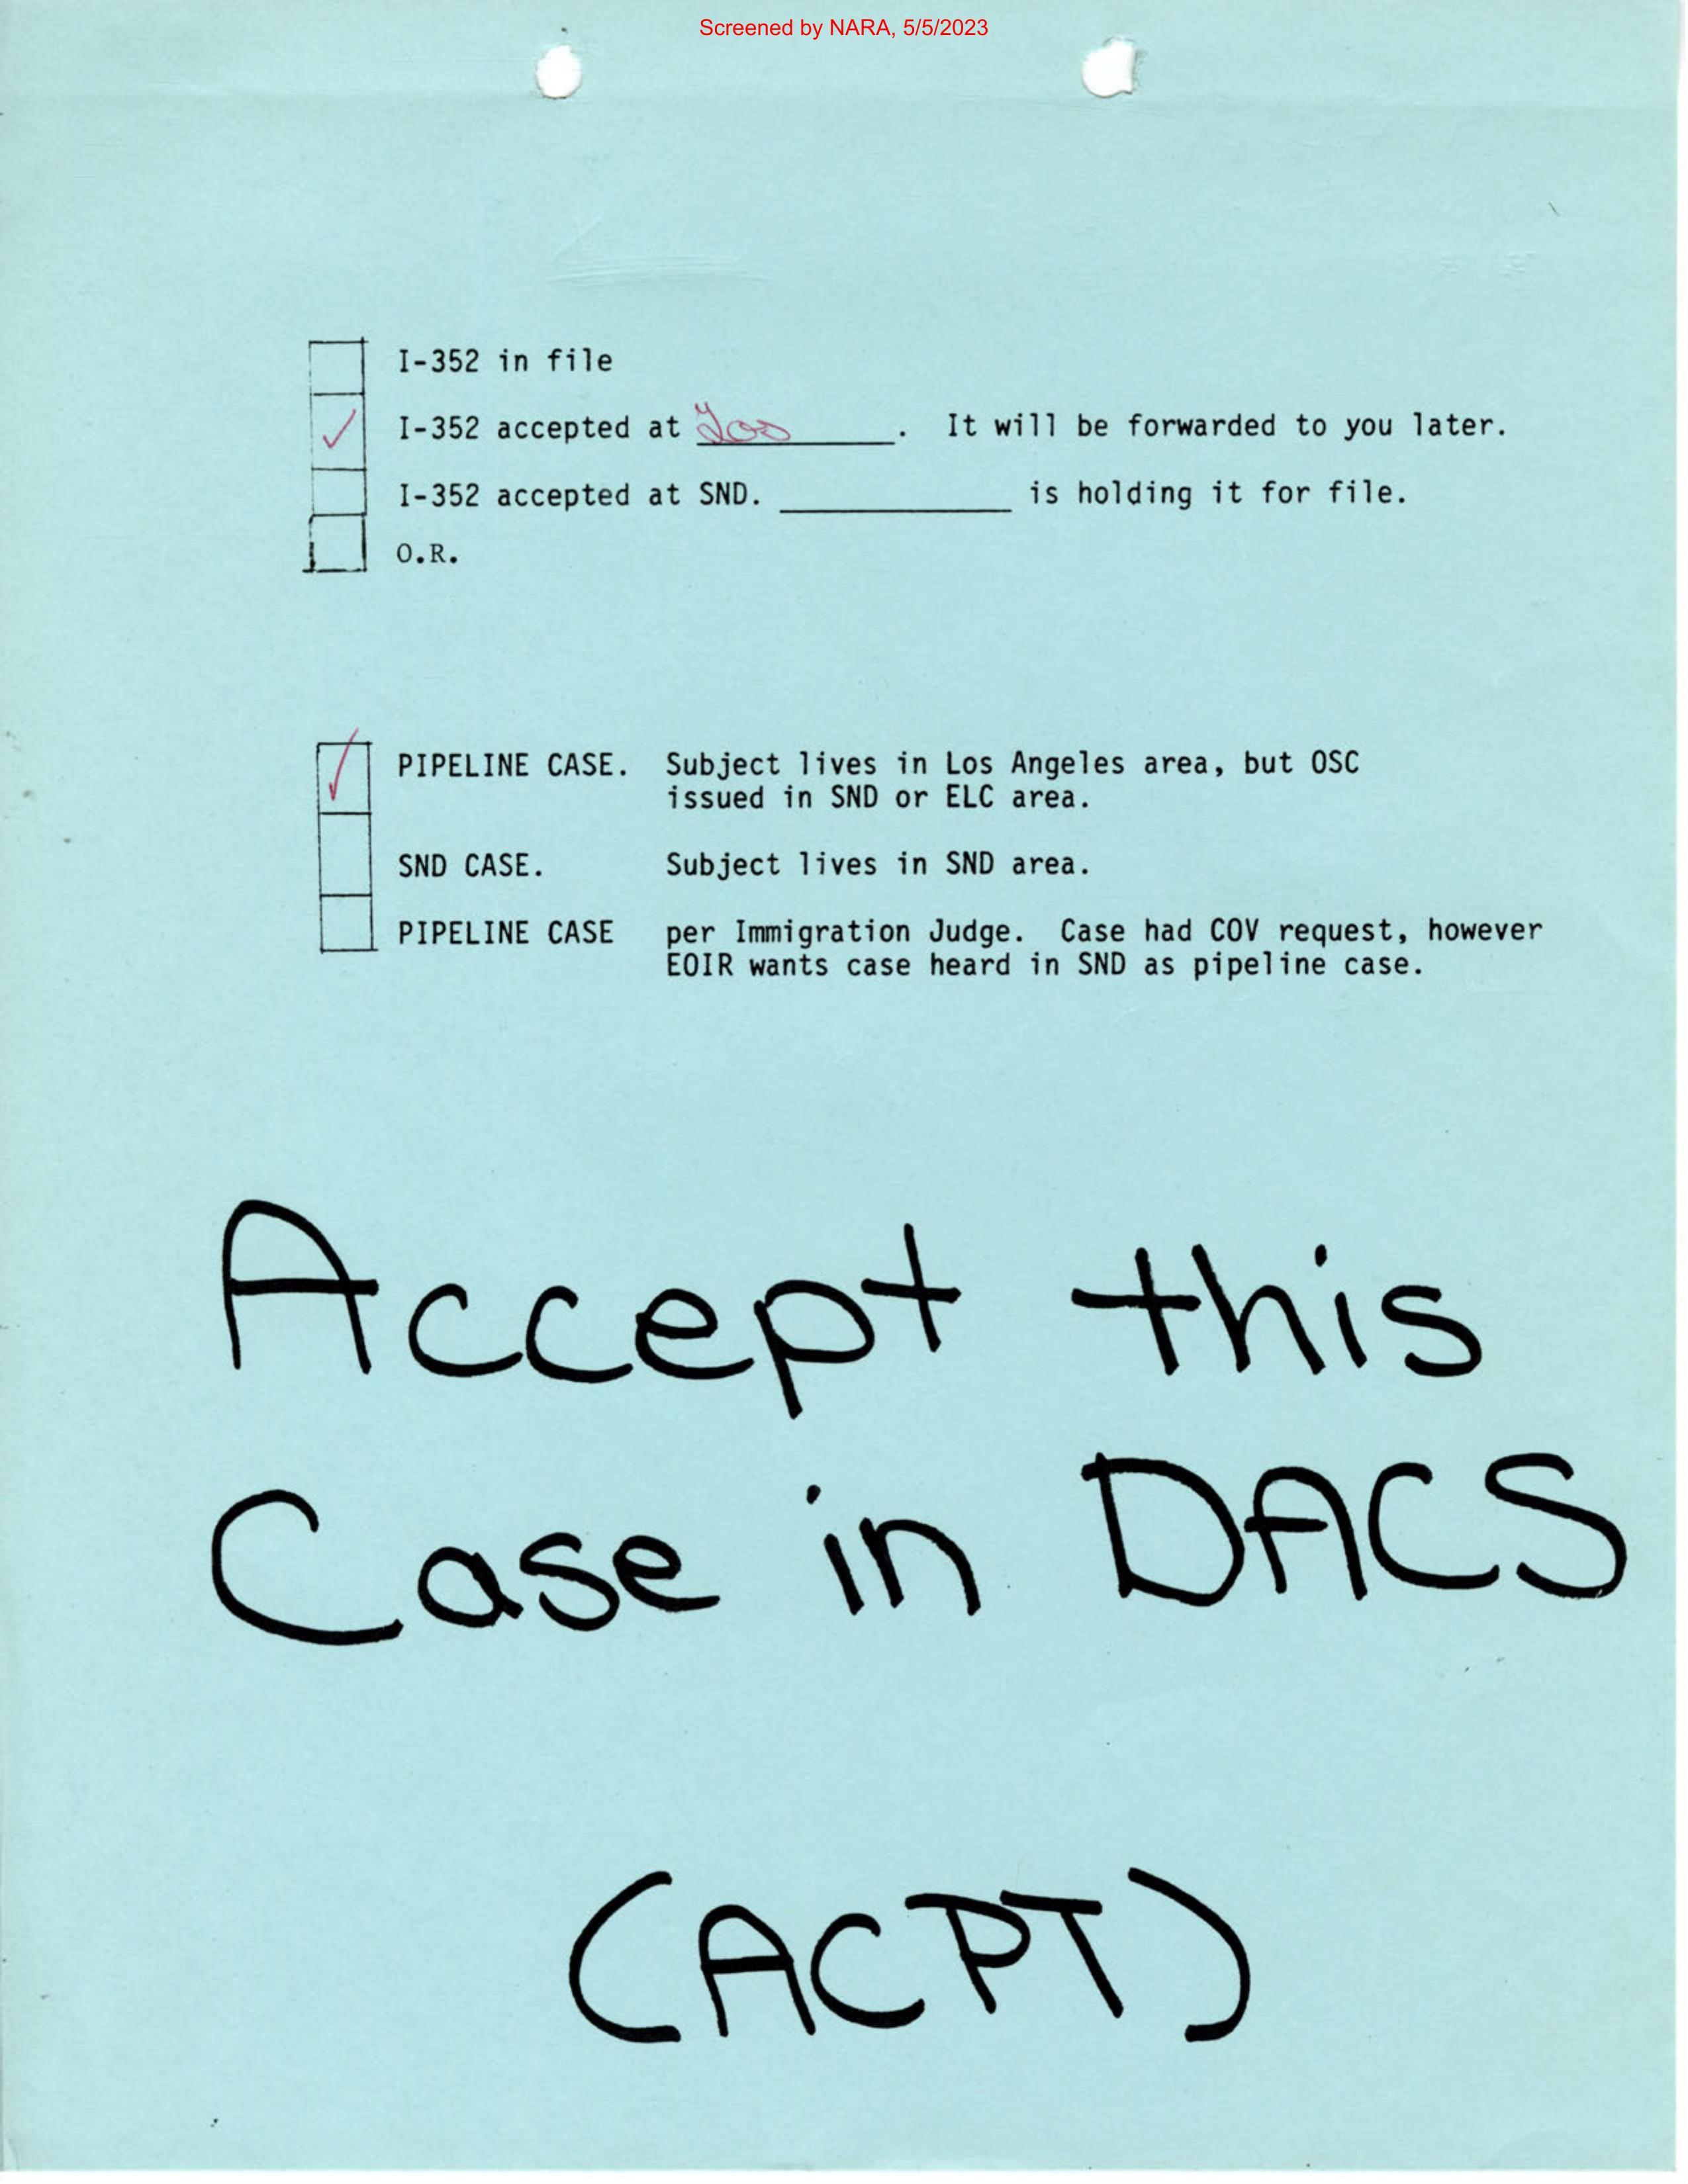 Screened by NARA, 5/5/2023
I-352 in file
✓ I-352 accepted at ________. It will be forwarded to you later.
I-352 accepted at SND. ________ is holding it for file.
O.R.
✓ PIPELINE CASE. Subject lives in Los Angeles area, but OSC
issued in SND or ELC area.
SND CASE. Subject lives in SND area.
PIPELINE CASE per Immigration Judge. Case had COV request, however
EOIR wants case heard in SND as pipeline case.
Accept this
Case in DACS
(ACPT)